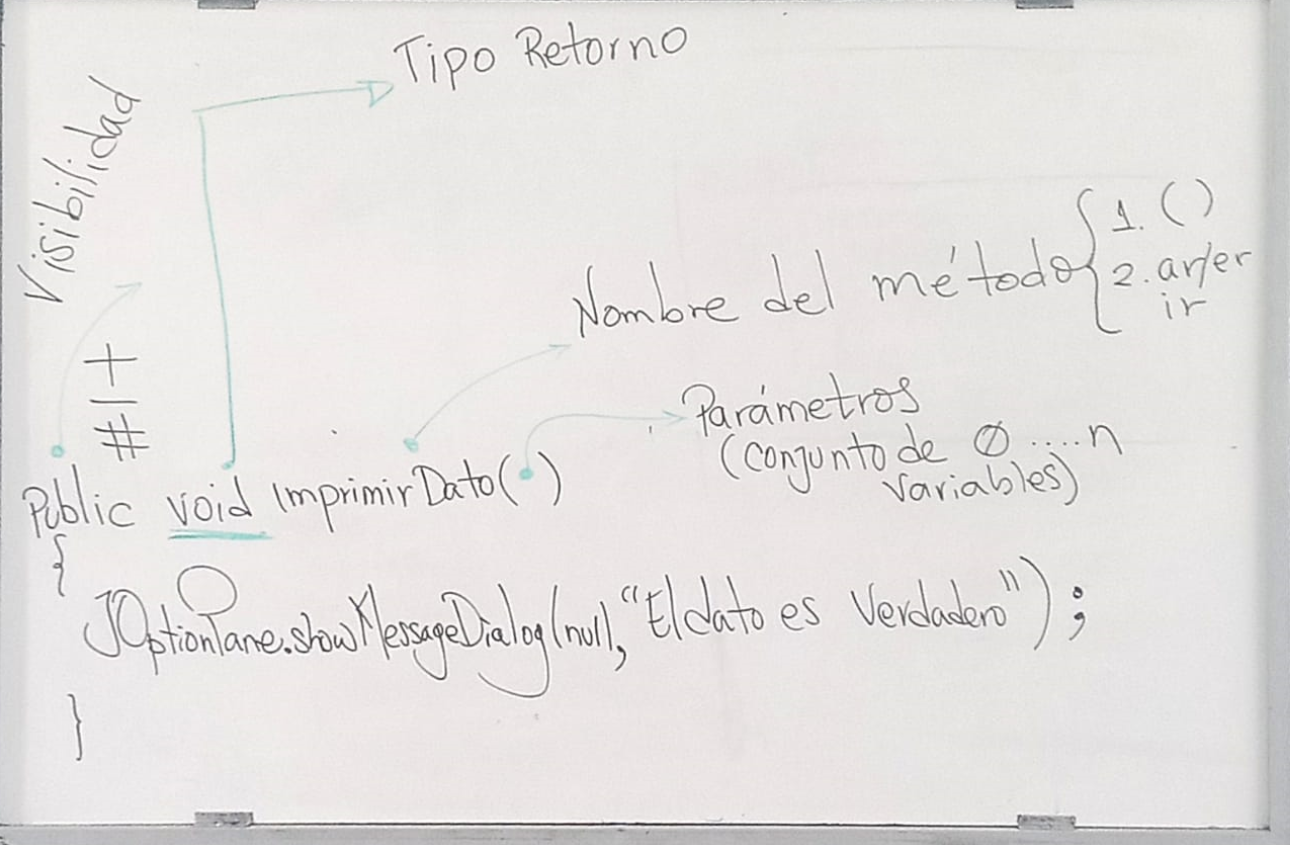 Tipo Retorno
Visibilidad
Nombre del método { 1. ()
2. ar/er
ir
+
-
#
Parámetros
(conjunto de 0 .... n
variables)
Public void imprimirDato( )
{
JOptionPane.showMessageDialog(null, "El dato es Verdadero");
}